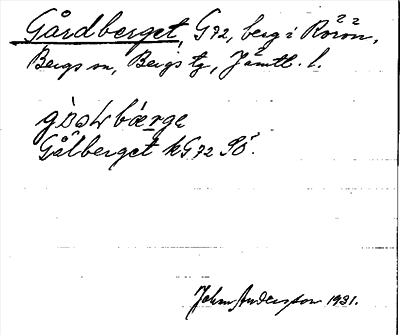 Gårdberget, G72, berg i Rörön,
Bergs sn, Bergs tg, Jämtl. l.
Gålberget kG72 SÖ.
John Andersson 1931.